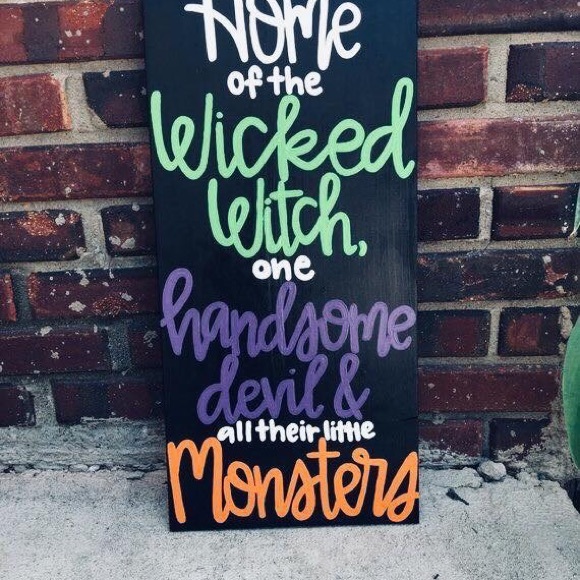 Home
of the
Wicked
Witch,
one
handsome
devil &
all their little
Monsters